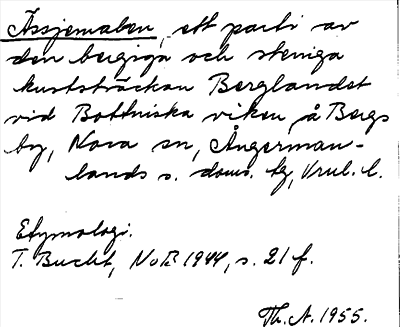 Ässjemaben, ett parti av
den bergiga och steniga
kuststräckan Berglandet
vid Bottniska viken å Bergs
by, Nora sn, Ångerman-
lands s. doms. tg, Vnrl. l.
Etymologi.
T. Bucht, NoB 1944, s. 21 f.
Th. A. 1955.